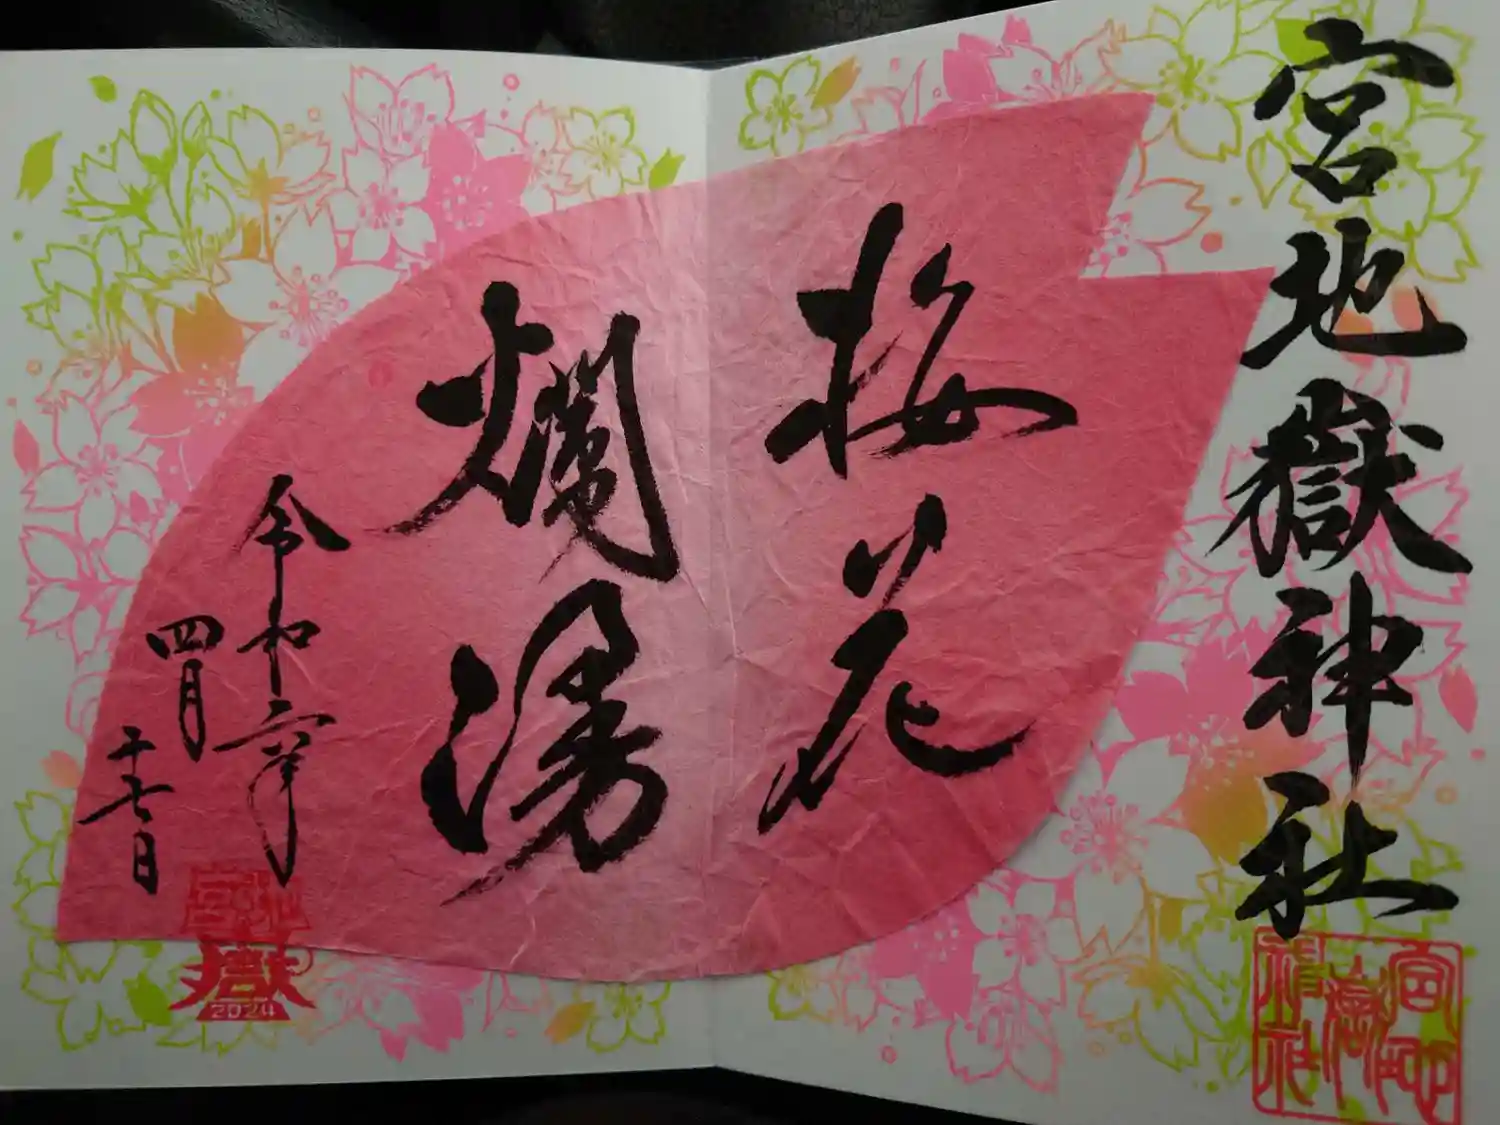 宮地嶽神社
桜花
爛漫
令和六年
四月
十七日
宮地
嶽
2024
宮地嶽神社